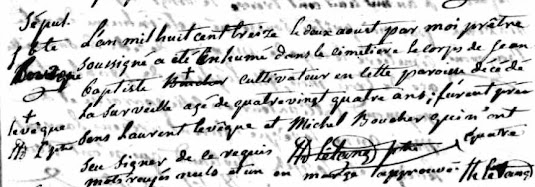 Sepult.
L'an mil huit cent treize le deux aoust par moi prêtre
soussigné a été Enhumé dans le cimetiere le corps de jean
Baptiste cultivateur en cette paroisse décédé
la surveille agé de quatre vingt quatre ans; furent pre
sens Laurent levêque et Michel Boucher qui n'ont
sçu signer de ce requis HLetang ptre quatre
mots rayés nuls et un en marge approuvé HLetang
+
levêque